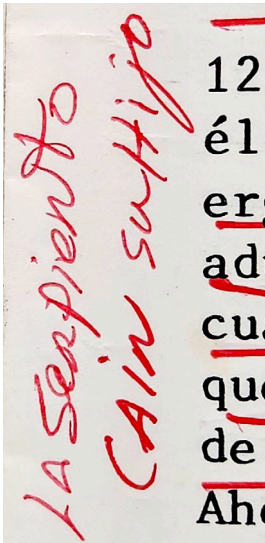 LA SERPIENTO
CAIN su Hijo
12
él
erg
adv
cua
que
de
Aho